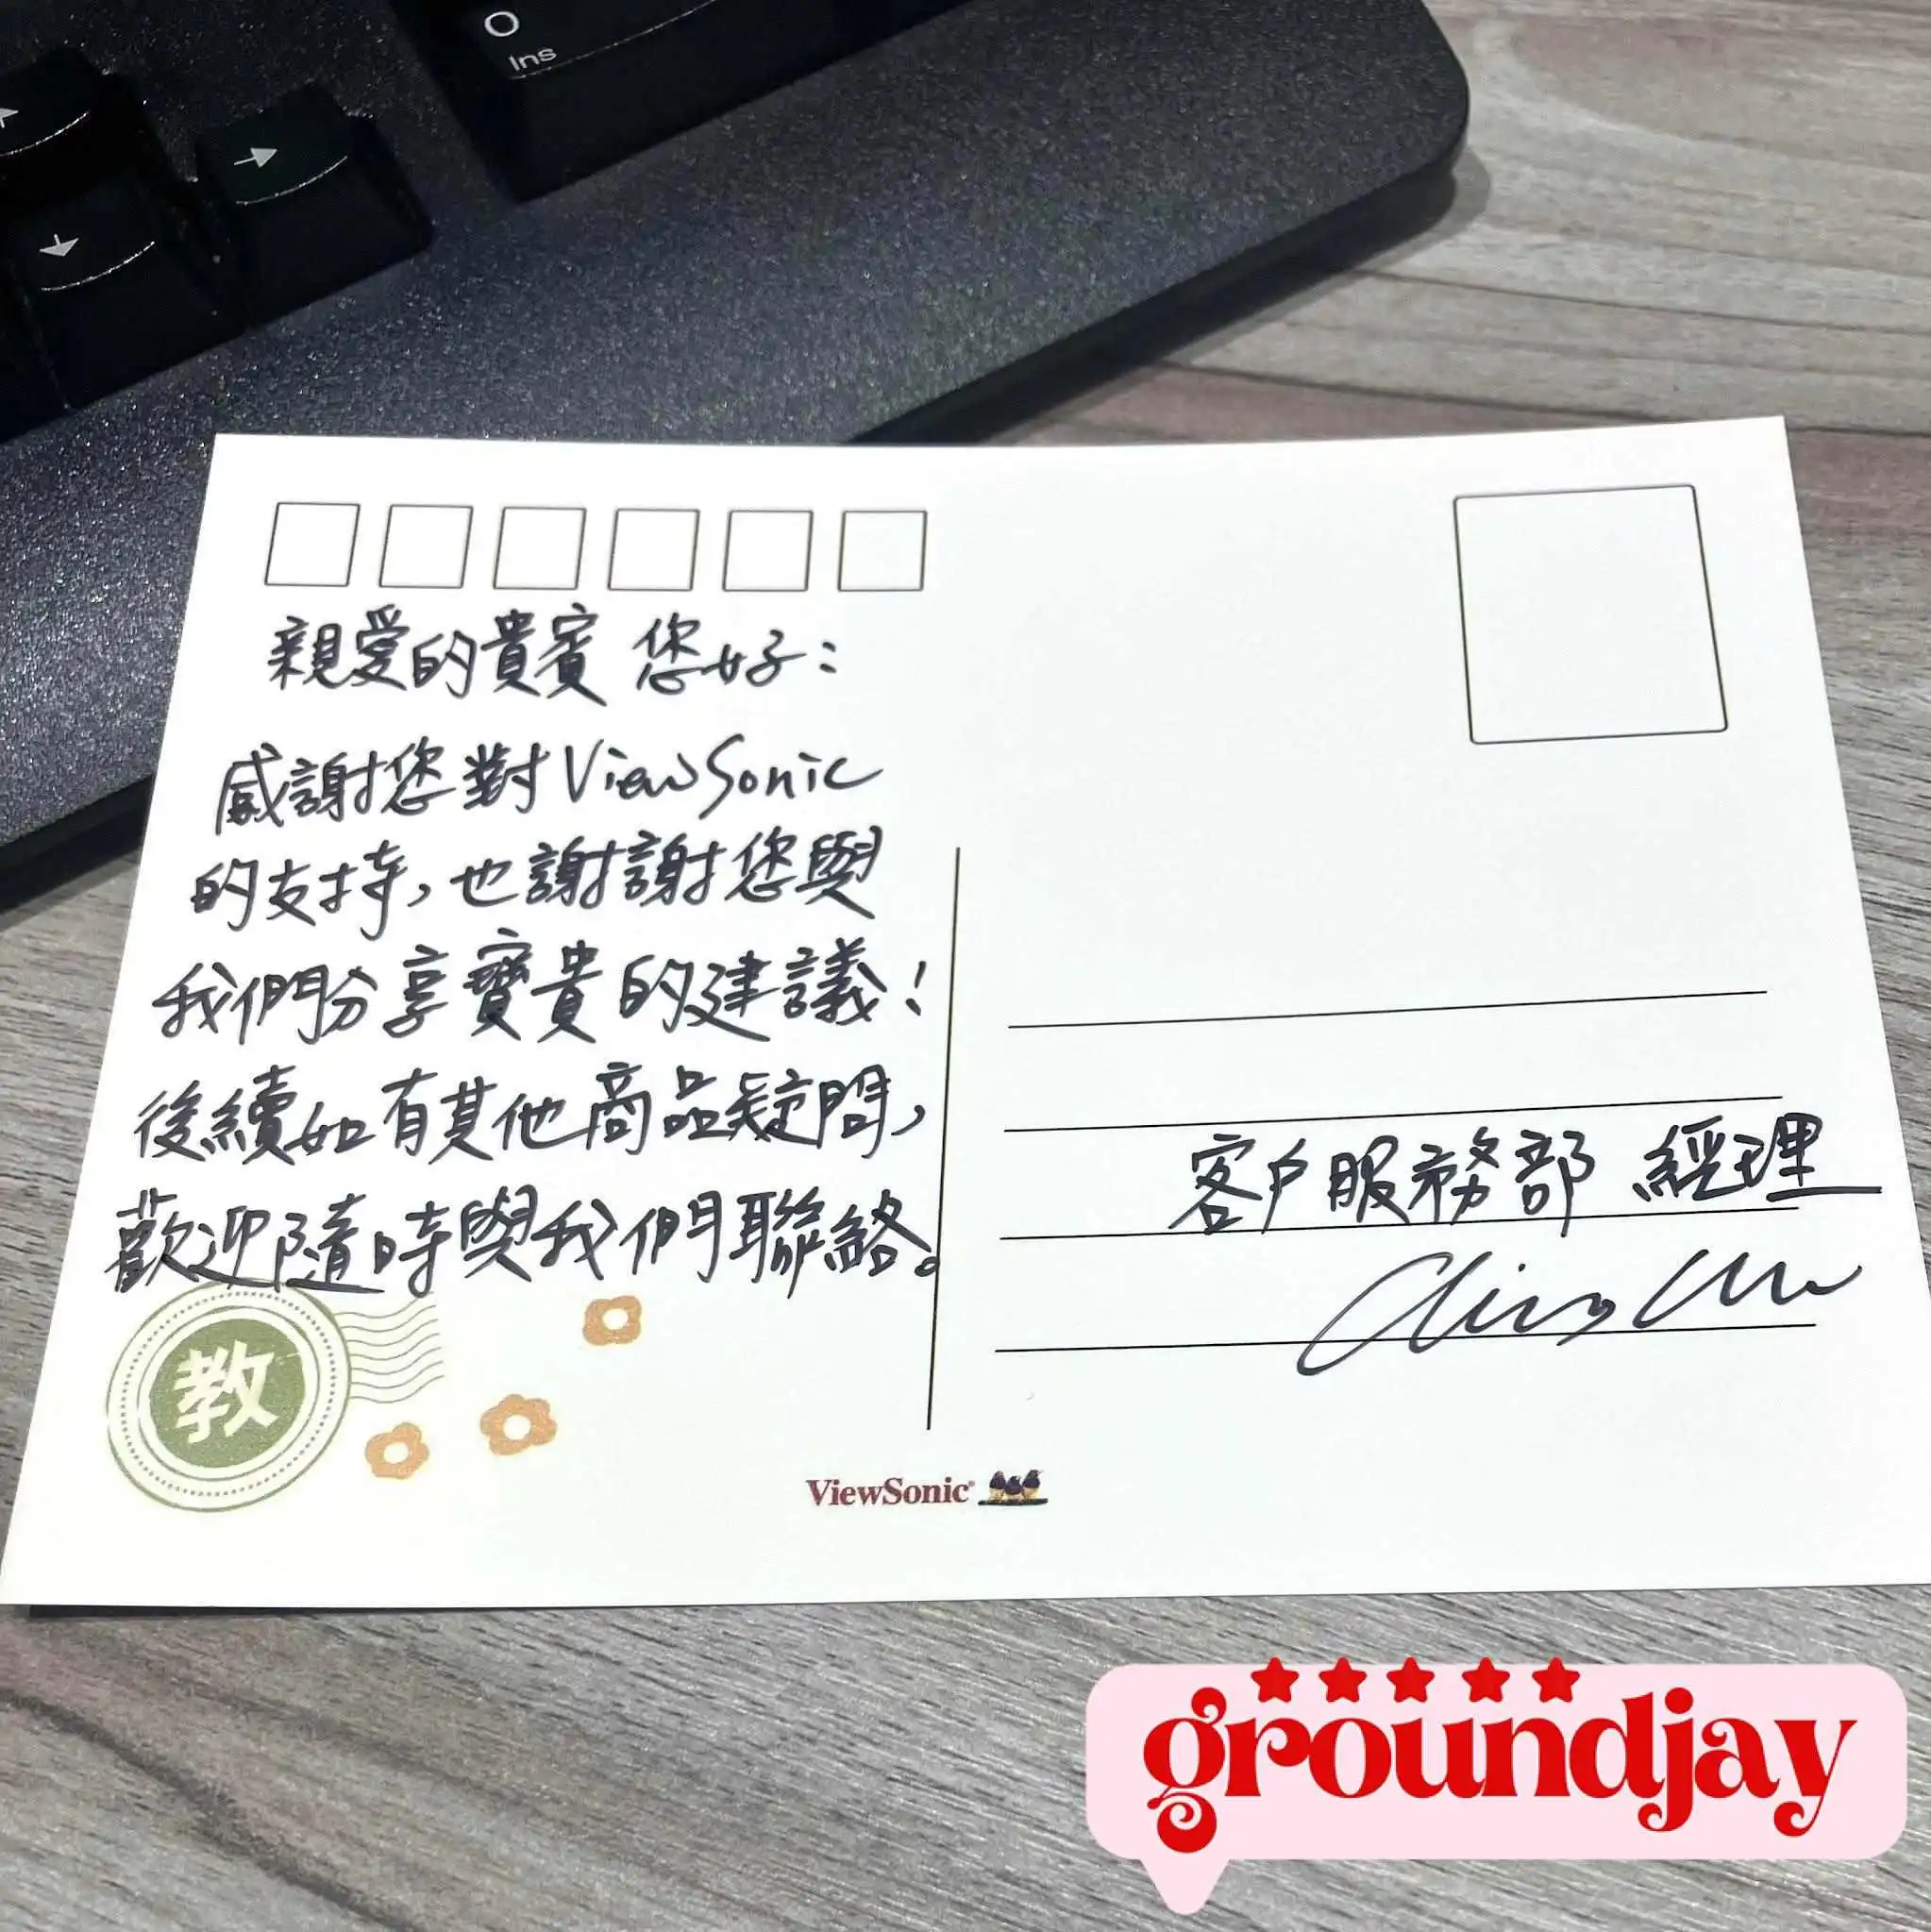 O
Ins
親愛的貴賓 您好:
感謝您對ViewSonic
的支持,也謝謝您與
我們分享寶貴的建議!
後續如有其他商品疑問,
歡迎隨時與我們聯絡。
客戶服務部 經理
教
ViewSonic
groundjay